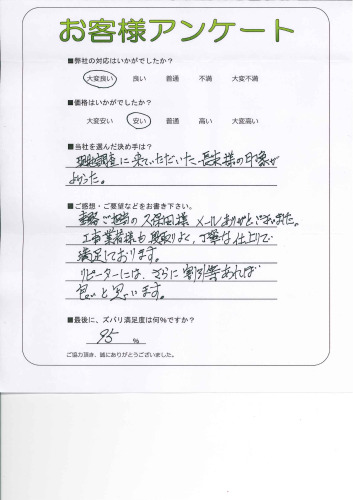 お客様アンケート
■弊社の対応はいかがでしたか?
大変良い 良い 普通 不満 大変不満
■価格はいかがでしたか?
大変安い 安い 普通 高い 大変高い
■当社を選んだ決め手は?
現地調査に来ていただいた長束様の印象が
よかった。
■ご感想・ご要望などをお書き下さい。
ご担当の久保田様 メールありがとうございました。
工事業者様も段取りよく、丁寧な仕上りで
満足しております。
リピーターには、さらに割引等あれば
良いと思います。
■最後に、ズバリ満足度は何%ですか?
95 %
ご協力頂き、誠にありがとうございました。